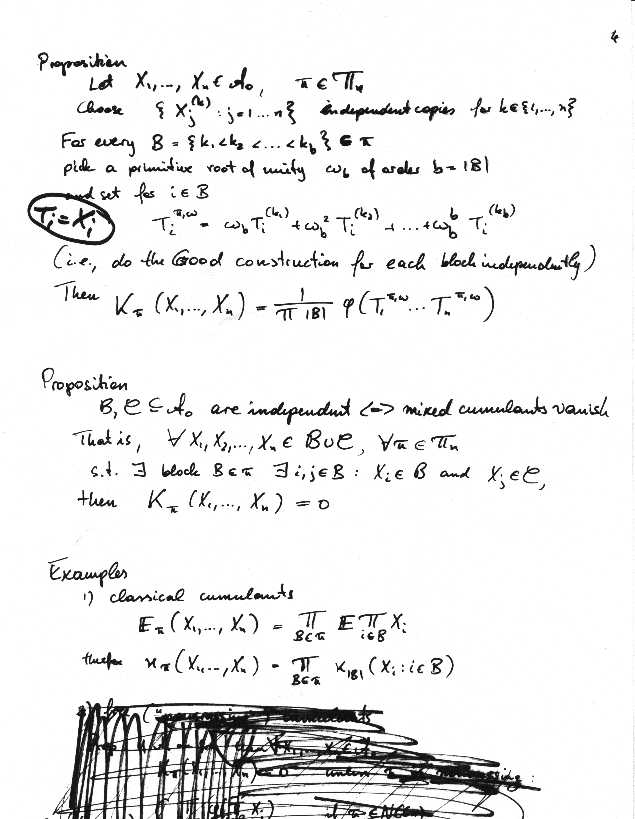 4
Proposition
Let X₁,..., Xₙ ∈ 𝒜₀, π ∈ Πₙ
Choose { Xⱼ⁽ᵏ⁾ : j=1...n} independent copies for k∈{1,...,n}
For every B = {k₁<k₂<...<k_b} ∈ π
pick a primitive root of unity ω_b of order b=|B|
and set for i ∈ B
Tᵢ=Xᵢ
Tᵢ^{π,ω} = ω_b Tᵢ^{(k₁)} + ω_b² Tᵢ^{(k₂)} + ... + ω_b^b Tᵢ^{(k_b)}
(i.e., do the Good construction for each block independently)
Then K_π (X₁,..., Xₙ) = 1/∏|B| φ(T₁^{π,ω}... Tₙ^{π,ω})
Proposition
ℬ, 𝒞 ⊆ 𝒜₀ are independent <=> mixed cumulants vanish
That is, ∀ X₁, X₂,..., Xₙ ∈ ℬ∪𝒞, ∀π∈Πₙ
s.t. ∃ block B∈π ∃ i,j∈B : Xᵢ∈ℬ and Xⱼ∈𝒞,
then K_π (X₁,..., Xₙ) = 0
Examples
1) classical cumulants
𝔼_π (X₁,..., Xₙ) = ∏_{B∈π} 𝔼 ∏_{i∈B} Xᵢ
κ_π(X₁,..., Xₙ) = ∏_{B∈π} κ_{|B|} (Xᵢ : i∈B)
cumulants